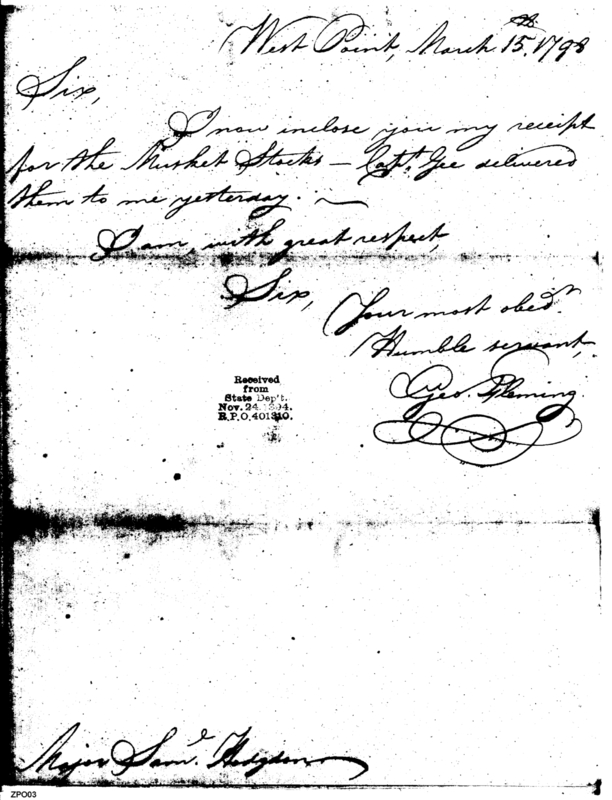 West Point, March 15.th 1798
Sir,
I now inclose you my receipt
for the Musket Stocks — Capt. Gee delivered
them to me yesterday. —
I am, with great respect,
Sir,
Your most obed.t
Humble servant,
Geo. Fleming
Received
from
State Dep't.
Nov. 24, 1894.
R.P.O. 401310.
Major Sam.l Hodgdon
ZPO03